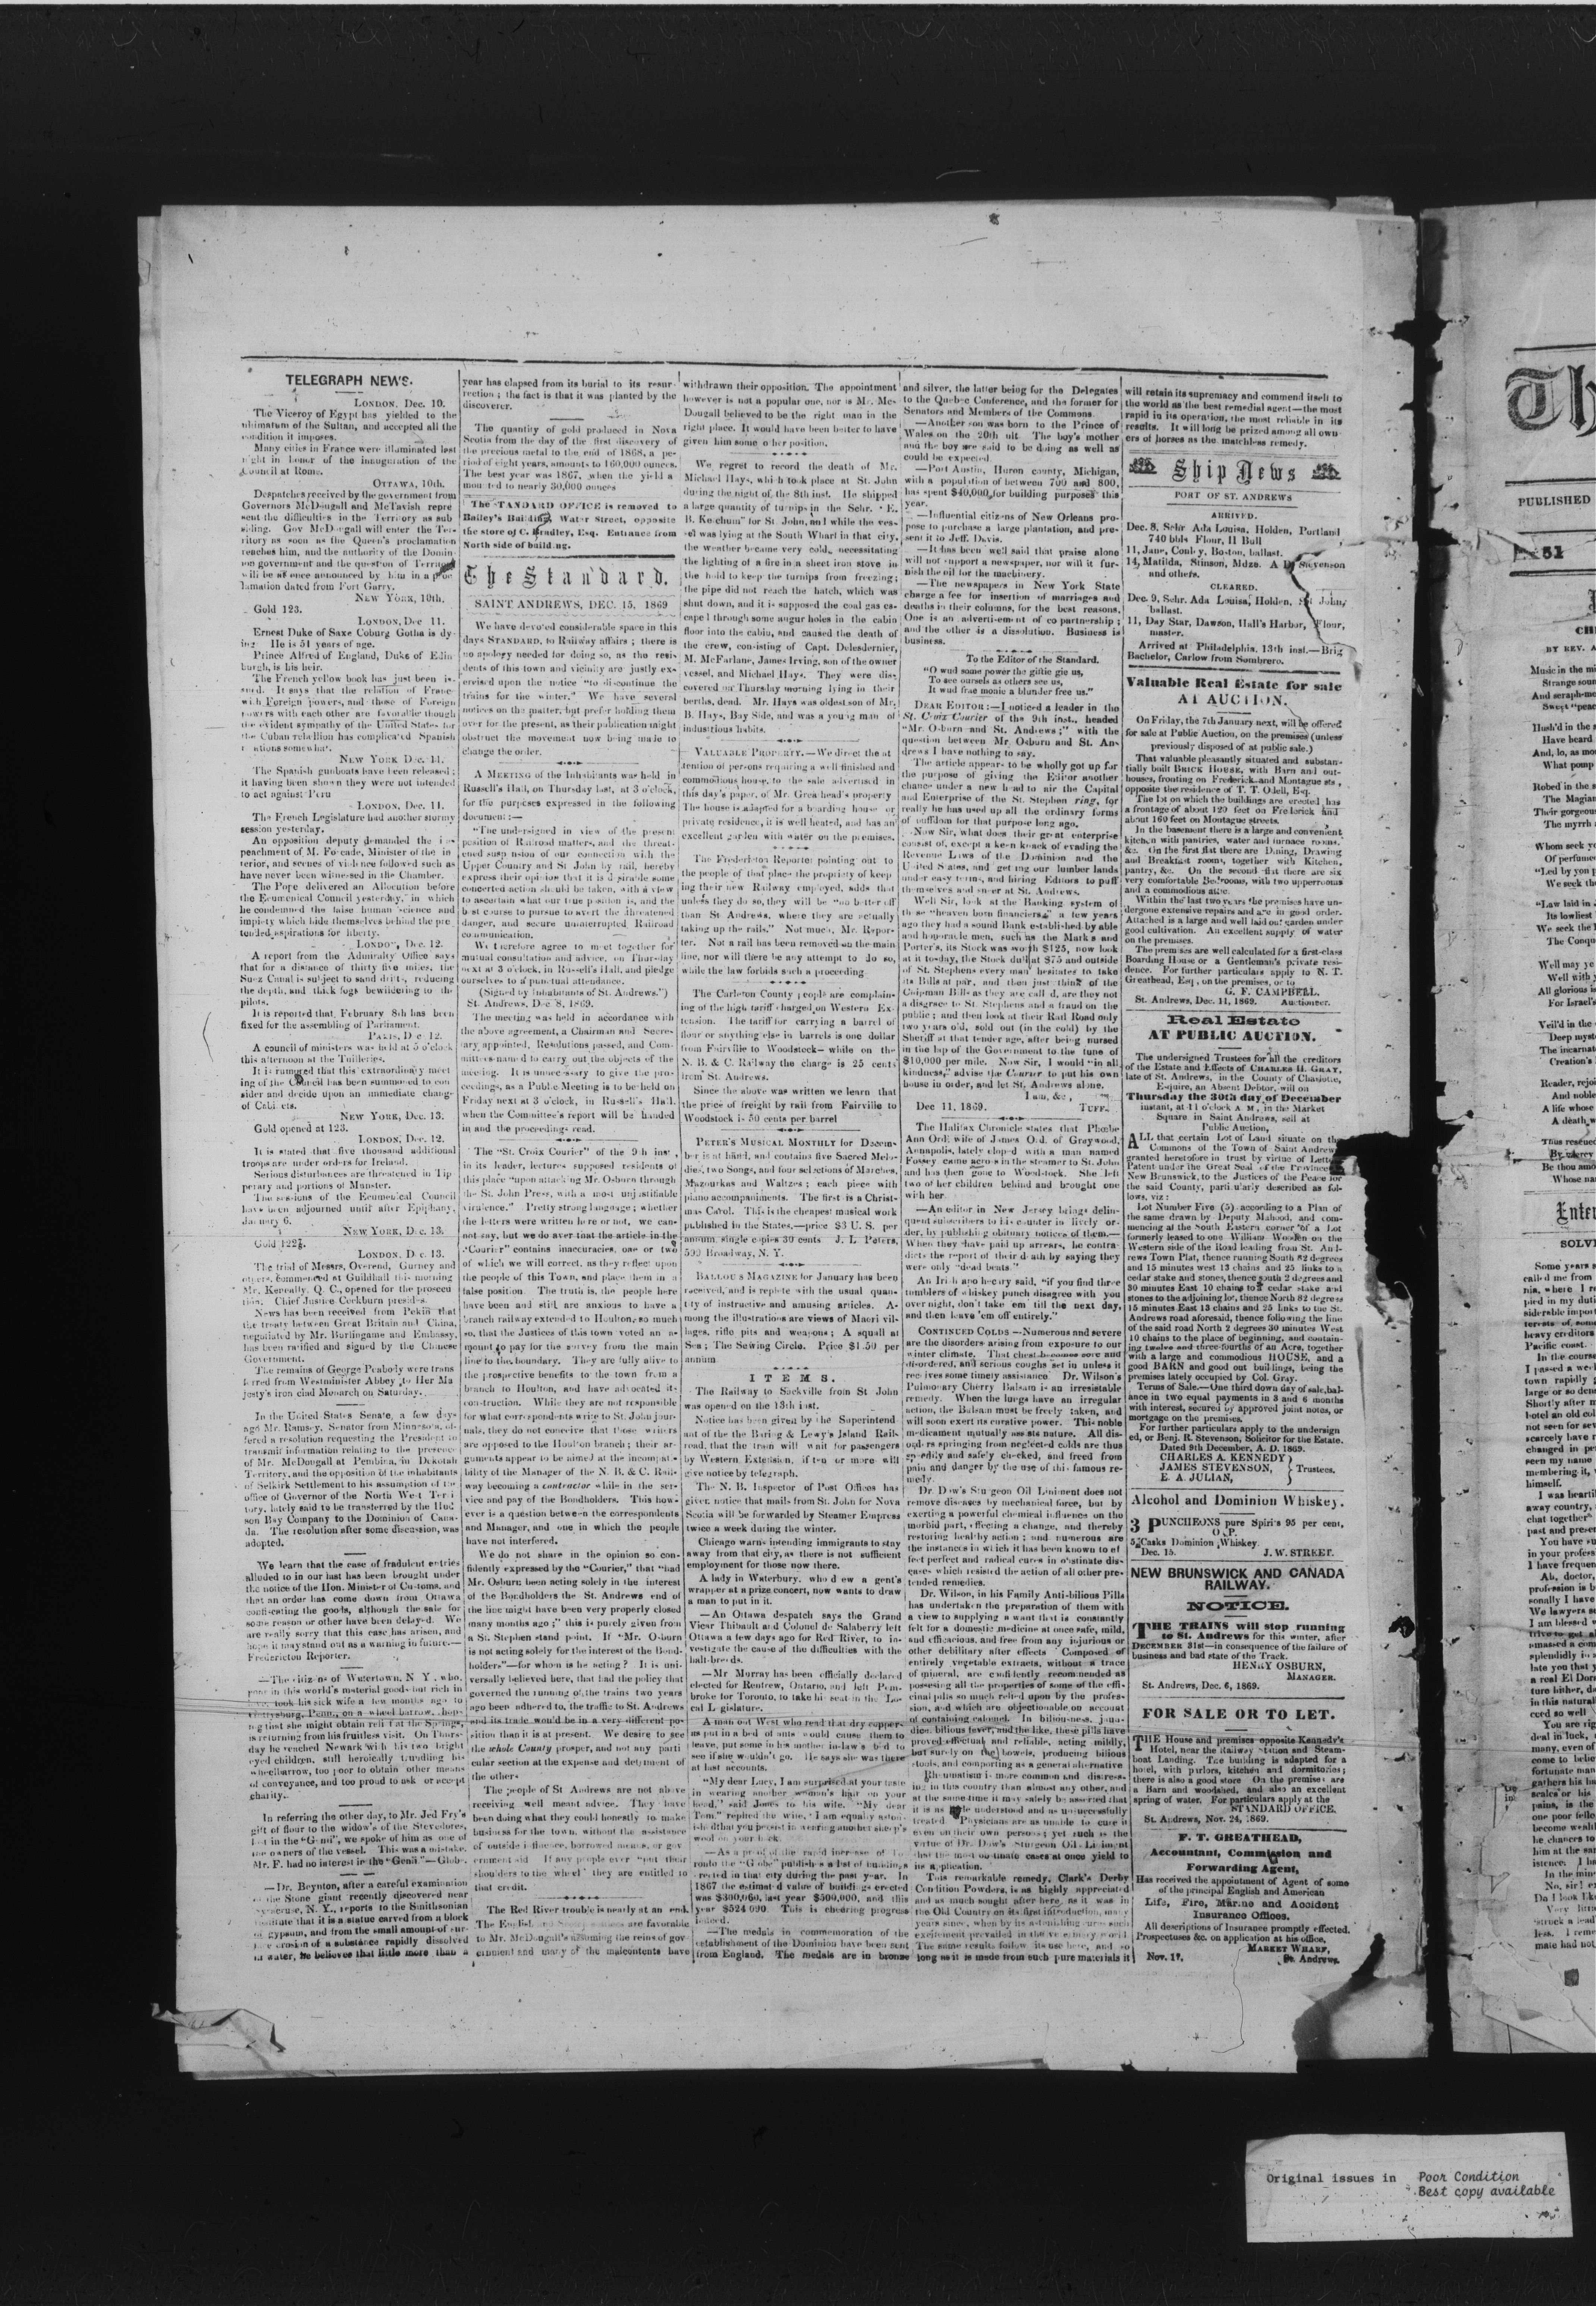 TELEGRAPH NEWS.
LONDON, Dec. 10.
The Viceroy of Egypt has yielded to the
ultimatum of the Sultan, and accepted all the
condition it imposes.
Many cities in France were illuminated last
night in honor of the inauguration of the
Council at Rome.
OTTAWA, 10th.
Despatches received by the government from
Governors McDougall and McTavish repre
sent the difficulties in the Territory as sub
siding. Gov McDougall will enter the Ter-
ritory as soon as the Queen's proclamation
reaches him, and the authority of the Domin-
ion government and the question of
will be at once announced by him in a
lamation dated from Fort Garry.
NEW YORK, 10th.
Gold 123.
LONDON, Dec 11.
Ernest Duke of Saxe Coburg Gotha is dy-
ing He is 51 years of age.
Prince Alfred of England, Duke of Edin
burgh, is his heir.
The French yellow book has just been is-
sued. It says that the relation of France
with Foreign powers, and those of Foreign
powers with each other are favorable though
the evident sympathy of the United States for
the Cuban rebellion has complicated Spanish
relations somewhat.
NEW YORK Dec. 11.
The Spanish gunboats have been released;
it having been shown they were not intended
to act against Peru
LONDON, Dec. 11.
The French Legislature had another stormy
session yesterday.
An opposition deputy demanded the im-
peachment of M. Forcade, Minister of the in
terior, and scenes of violence followed such as
have never been witnessed in the Chamber.
The Pope delivered an Allocution before
the Ecumenical Council yesterday, in which
he condemned the false human science and
impiety which hide themselves behind the pre
tended aspirations for liberty.
LONDON, Dec. 12.
A report from the Admiralty Office says
that for a distance of thirty five miles, the
Suez Canal is subject to sand drifts, reducing
the depth, and thick fogs bewildering to the
pilots.
It is reported that February 8th has been
fixed for the assembling of Parliament.
PARIS, Dec 12.
A council of ministers was held at 5 o'clock
this afternoon at the Tuilleries.
It is rumored that this extraordinary meet
ing of the Council has been summoned to con
sider and decide upon an immediate change
of Cabinets.
NEW YORK, Dec. 13.
Gold opened at 123.
LONDON, Dec. 12.
It is stated that five thousand additional
troops are under orders for Ireland.
Serious disturbances are threatened in Tip
perary and portions of Munster.
The sessions of the Ecumenical Council
have been adjourned until after Epiphany,
January 6.
NEW YORK, Dec. 13.
Gold 122½.
LONDON, Dec. 13.
The trial of Messrs, Overend, Gurney and
others, commenced at Guildhall this morning
Mr. Keneally, Q. C., opened for the prosecu
tion; Chief Justice Cockburn presides.
News has been received from Pekin that
the treaty between Great Britain and China,
negotiated by Mr. Burlingame and Embassy,
has been ratified and signed by the Chinese
Government.
The remains of George Peabody were trans
ferred from Westminister Abbey to Her Ma
jesty's iron clad Monarch on Saturday.
In the United States Senate, a few days
ago Mr. Ramsey, Senator from Minnesota, of-
fered a resolution requesting the President to
transmit information relating to the presence
of Mr. McDougall at Pembina, in Dekotah
Territory, and the opposition of the inhabitants
of Selkirk Settlement to his assumption of the
office of Governor of the North West Terri
tory, lately said to be transferred by the Hud
son Bay Company to the Dominion of Cana-
da. The resolution after some discussion, was
adopted.
We learn that the case of fradulent entries
alluded to in our last has been brought under
the notice of the Hon. Minister of Customs, and
that an order has come down from Ottawa
confiscating the goods, although the sale for
some reason or other have been delayed. We
are really sorry that this case has arisen, and
hope it may stand out as a warning in future.—
Fredericton Reporter.
—The citizens of Watertown, N. Y., who,
poor in this world's material goods but rich in
love, took his sick wife a few months ago to
Gettysburg, Penn., on a wheel barrow, hop-
ing that she might obtain relief at the Springs,
is returning from his fruitless visit. On Thurs-
day he reached Newark with his two bright
eyed children, still heroically trundling his
wheelbarrow, too poor to obtain other means
of conveyance, and too proud to ask or accept
charity.
In referring the other day, to Mr. Jed Fry's
gift of flour to the widow's of the Stevedores,
lost in the "Genii", we spoke of him as one of
the owners of the vessel. This was a mistake.
Mr. F. had no interest in the "Genii."—Globe.
—Dr. Boynton, after a careful examination
of the Stone giant recently discovered near
Syracuse, N. Y., reports to the Smithsonian
Institute that it is a statue carved from a block
of gypsum, and from the small amount of sur-
face erosion of a substance rapidly dissolved
in water, he believes that little more than a
year has elapsed from its burial to its resur-
rection; the fact is that it was planted by the
discoverer.
The quantity of gold produced in Nova
Scotia from the day of the first discovery of
the precious metal to the end of 1868, a pe-
riod of eight years, amounts to 160,000 ounces.
The best year was 1867, when the yield a
mounted to nearly 30,000 ounces
The STANDARD OFFICE is removed to
Bailey's Building, Water Street, opposite
the store of C. Bradley, Esq. Entrance from
North side of building.
The Standard.
SAINT ANDREWS, DEC. 15, 1869
We have devoted considerable space in this
days STANDARD, to Railway affairs; there is
no apology needed for doing so, as the resi-
dents of this town and vicinity are justly ex-
ercised upon the notice "to discontinue the
trains for the winter." We have several
notices on the matter, but prefer holding them
over for the present, as their publication might
obstruct the movement now being made to
change the order.
A MEETING of the Inhabitants was held in
Russell's Hall, on Thursday last, at 3 o'clock,
for the purposes expressed in the following
document:—
"The undersigned in view of the present
position of Railroad matters, and the threat-
ened suspension of our connection with the
Upper Country and St John by rail, hereby
express their opinion that it is desirable some
concerted action should be taken, with a view
to ascertain what our true position is, and the
best course to pursue to avert the threatened
danger, and secure uninterrupted Railroad
communication.
We therefore agree to meet together for
mutual consultation and advice, on Thursday
next at 3 o'clock, in Russell's Hall, and pledge
ourselves to a punctual attendance.
(Signed by Inhabitants of St. Andrews.")
St. Andrews, Dec 8, 1869.
The meeting was held in accordance with
the above agreement, a Chairman and Secre-
tary appointed, Resolutions passed, and Com-
mittees named to carry out the objects of the
meeting. It is unnecessary to give the pro-
ceedings, as a Public Meeting is to be held on
Friday next at 3 o'clock, in Russell's Hall,
when the Committee's report will be handed
in and the proceedings read.
The "St. Croix Courier" of the 9th inst,
in its leader, lectures supposed residents of
this place "upon attacking Mr. Osburn through
the St. John Press, with a most unjustifiable
virulence." Pretty strong language; whether
the letters were written here or not, we can-
not say, but we do aver that the article in the
"Courier" contains inaccuracies, one or two
of which we will correct, as they reflect upon
the people of this Town, and place them in a
false position. The truth is, the people here
have been and still are anxious to have a
branch railway extended to Houlton, so much
so, that the Justices of this town voted an a-
mount to pay for the survey from the main
line to the boundary. They are fully alive to
the prospective benefits to the town from a
branch to Houlton, and have advocated its
construction. While they are not responsible
for what correspondents write to St. John jour-
nals, they do not conceive that those writers
are opposed to the Houlton branch; their ar-
guments appear to be aimed at the incompati-
bility of the Manager of the N. B. & C. Rail-
way becoming a contractor while in the ser-
vice and pay of the Bondholders. This how-
ever is a question between the correspondents
and Manager, and one in which the people
have not interfered.
We do not share in the opinion so con-
fidently expressed by the "Courier," that "had
Mr. Osburn been acting solely in the interest
of the Bondholders the St. Andrews end of
the line might have been very properly closed
many months ago;" this is purely given from
a St. Stephen stand point. If "Mr. Osburn
is not acting solely for the interest of the Bond-
holders"—for whom is he acting? It is uni-
versally believed here, that had the policy that
governed the running of the trains two years
ago been adhered to, the traffic to St. Andrews
and its trade would be in a very different po-
sition than it is at present. We desire to see
the whole County prosper, and not any parti
cular section at the expense and detriment of
the others
The people of St Andrews are not above
receiving well meant advice. They have
been doing what they could honestly to make
business for the town, without the assistance
of outside influence, borrowed money, or gov
ernment aid If any people ever "put their
shoulders to the wheel" they are entitled to
that credit.
The Red River trouble is nearly at an end.
The English and are favorable
to Mr. McDougall's assuming the reins of gov-
ernment and many of the malcontents have
withdrawn their opposition. The appointment
however is not a popular one, nor is Mr. Mc-
Dougall believed to be the right man in the
right place. It would have been better to have
given him some other position.
We regret to record the death of Mr.
Michael Hays, which took place at St. John
during the night of, the 8th inst. He shipped
a large quantity of turnips in the Schr. "E.
B. Ketchum" for St. John, and while the ves-
sel was lying at the South Wharf in that city,
the weather became very cold, necessitating
the lighting of a fire in a sheet iron stove in
the hold to keep the turnips from freezing;
the pipe did not reach the hatch, which was
shut down, and it is supposed the coal gas es-
caped through some augur holes in the cabin
floor into the cabin, and caused the death of
the crew, consisting of Capt. Delesdernier,
M. McFarlane, James Irving, son of the owner
vessel, and Michael Hays. They were dis-
covered on Thursday morning lying in their
berths, dead. Mr. Hays was oldest son of Mr.
B. Hays, Bay Side, and was a young man of
industrious habits.
VALUABLE PROPERTY.—We direct the at
tention of persons requiring a well finished and
commodious house, to the sale advertised in
this day's paper, of Mr. Greathead's property
The house is adapted for a boarding house or
private residence, it is well heated, and has an
excellent garden with water on the premises.
The Fredericton Reporter pointing out to
the people of that place the propriety of keep
ing their new Railway employed, adds that
unless they do so, they will be "no better off
than St Andrews, where they are actually
taking up the rails." Not much, Mr. Repor-
ter. Not a rail has been removed on the main
line, nor will there be any attempt to do so,
while the law forbids such a proceeding.
The Carleton County people are complain-
ing of the high tariff charged on Western Ex-
tension. The tariff for carrying a barrel of
flour or anything else in barrels is one dollar
from Fairville to Woodstock—while on the
N. B. & C. Railway the charge is 25 cents
from St. Andrews.
Since the above was written we learn that
the price of freight by rail from Fairville to
Woodstock is 50 cents per barrel
PETER'S MUSICAL MONTHLY for Decem-
ber is at hand, and contains five Sacred Melo-
dies, two Songs, and four selections of Marches,
Mazourkas and Waltzes; each piece with
piano accompaniments. The first is a Christ-
mas Carol. This is the cheapest musical work
published in the States.—price $3 U. S. per
annum, single copies 30 cents J. L Peters,
599 Broadway, N. Y.
BALLOU'S MAGAZINE for January has been
received, and is replete with the usual quan-
tity of instructive and amusing articles. A-
mong the illustrations are views of Maori vil-
lages, rifle pits and weapons; A squall at
Sea; The Sewing Circle. Price $1.50 per
annum
ITEMS.
The Railway to Sackville from St John
was opened on the 13th inst.
Notice has been given by the Superintend-
ant of the the Baring & Lewy's Island Rail-
road, that the train will wait for passengers
by Western Extension, if two or more will
give notice by telegraph.
The N. B. Inspector of Post Offices has
given notice that mails from St. John for Nova
Scotia will be forwarded by Steamer Empress
twice a week during the winter.
Chicago warns intending immigrants to stay
away from that city, as there is not sufficient
employment for those now there.
A lady in Waterbury, who drew a gent's
wrapper at a prize concert, now wants to draw
a man to put in it.
—An Ottawa despatch says the Grand
Vicar Thibault and Colonel de Salaberry left
Ottawa a few days ago for Red River, to in-
vestigate the cause of the difficulties with the
half-breeds.
—Mr Murray has been officially declared
elected for Renfrew, Ontario, and left Pem-
broke for Toronto, to take his seat in the Lo-
cal Legislature.
A man out West who read that dry copper-
as put in a bed of ants would cause them to
leave, put some in his mother in-law's bed to
see if she wouldn't go. He says she was there
at last accounts.
"My dear Lucy, I am surprised at your taste
in wearing another woman's hair on your
head," said Jones to his wife. "My dear
Tom," replied the wife, "I am equally aston-
ished that you persist in wearing another sheep's
wool on your back.
—As a proof of the rapid increase of To
ronto the "Globe" publishes a list of buildings
erected in that city during the past year. In
1867 the estimated value of buildings erected
was $300,060, last year $500,000, and this
year $524 090. This is cheering progress
indeed.
—The medals in commemoration of the
establishment of the Dominion have been sent
from England. The medals are in bronze
and silver, the latter being for the Delegates
to the Quebec Conference, and the former for
Senators and Members of the Commons.
—Another son was born to the Prince of
Wales on the 20th ult. The boy's mother
and the boy are said to be doing as well as
could be expected.
—Port Austin, Huron county, Michigan,
with a population of between 700 and 800,
has spent $40,000 for building purposes this
year.
—Influential citizens of New Orleans pro-
pose to purchase a large plantation, and pre-
sent it to Jeff. Davis.
—It has been well said that praise alone
will not support a newspaper, nor will it fur-
nish the oil for the machinery.
—The newspapers in New York State
charge a fee for insertion of marriages and
deaths in their columns, for the best reasons.
One is an advertisement of co partnership;
and the other is a dissolution. Business is
business.
To the Editor of the Standard.
"O wud some power the giftie gie us,
To see ourselves as others see us,
It wud frae monie a blunder free us."
DEAR EDITOR:—I noticed a leader in the
St. Croix Courier of the 9th inst., headed
"Mr. Osburn and St. Andrews;" with the
question between Mr Osburn and St. An-
drews I have nothing to say.
The article appears to be wholly got up for
the purpose of giving the Editor another
chance under a new head to air the Capital
and Enterprise of the St. Stephen ring, for
really he has used up all the ordinary forms
of puffdom for that purpose long ago.
Now Sir, what does their great enterprise
consist of, except a keen knack of evading the
Revenue Laws of the Dominion and the
United States, and getting our lumber lands
under easy terms, and hiring Editors to puff
themselves and sneer at St. Andrews.
Well Sir, look at the Banking system of
these "heaven born financiers," a few years
ago they had a sound Bank established by able
and honorable men, such as the Marks and
Porter's, its Stock was worth $125, now look
at it today, the Stock dull at $75 and outside
of St. Stephens every man hesitates to take
its Bills at par, and then just think of the
Chipman Bills as they are called, are they not
a disgrace to St. Stephens and a fraud on the
public; and then look at their Rail Road only
two years old, sold out (in the cold) by the
Sheriff at that tender age, after being nursed
in the lap of the Government to the tune of
$10,000 per mile. Now Sir, I would "in all
kindness," advise the Courier to put his own
house in order, and let St. Andrews alone.
I am, &c.,
TUFF.
Dec 11, 1869.
The Halifax Chronicle states that Phœbe
Ann Ord, wife of James Ord, of Graywood,
Annapolis, lately eloped with a man named
Fossey came across in the steamer to St. John
and has then gone to Woodstock. She left
two of her children behind and brought one
with her.
—An editor in New Jersey brings delin-
quent subscribers to his counter in lively or-
der, by publishing obituary notices of them.—
When they have paid up arrears, he contra-
dicts the report of their death by saying they
were only "dead beats."
An Irish apothecary said, "if you find three
tumblers of whiskey punch disagree with you
over night, don't take 'em till the next day,
and then leave 'em off entirely."
CONTINUED COLDS—Numerous and severe
are the disorders arising from exposure to our
winter climate. That chest becomes sore and
disordered, and serious coughs set in unless it
receives some timely assistance. Dr. Wilson's
Pulmonary Cherry Balsam is an irresistable
remedy. When the lungs have an irregular
action, the Balsam must be freely taken, and
will soon exert its curative power. This noble
medicament mutually assists nature. All dis-
orders springing from neglected colds are thus
speedily and safely checked, and freed from
pain and danger by the use of this famous re-
medy.
Dr. Dow's Sturgeon Oil Liniment does not
remove diseases by mechanical force, but by
exerting a powerful chemical influence on the
morbid part, effecting a change, and thereby
restoring healthy action; and numerous are
the instances in which it has been known to ef
fect perfect and radical cures in obstinate dis-
eases which resisted the action of all other pre-
tended remedies.
Dr. Wilson, in his Family Anti-bilious Pills
has undertaken the preparation of them with
a view to supplying a want that is constantly
felt for a domestic medicine at once safe, mild,
and efficacious, and free from any injurious or
other debilitary after effects Composed of
entirely vegetable extracts, without a trace
of mineral, are confidently recommended as
possesing all the properties of some of the offi-
cinal pills so much relied upon by the profes-
sion, and which are objectionable on account
of containing calomel. In biliousness, jaun-
dice, bilious fever, and the like, these pills have
proved effectual and reliable, acting mildly,
but surely on the bowels, producing bilious
stools, and comporting as a general alternative
Rheumatism is more common and distress-
ing in this country than almost any other, and
at the same time it may safely be asserted that
it is as little understood and as unsuccessfully
treated Physicians are as unable to cure it
even on their own persons; yet such is the
virtue of Dr. Dow's Sturgeon Oil Liniment
that the most obstinate cases at once yield to
its application.
This remarkable remedy, Clark's Derby
Condition Powders, is as highly appreciated
and as much sought after here, as it was in
the Old Country on its first introduction, many
years since, when by its astonishing cures such
excitement prevailed in the veterinary world
The same results follow its use here, and so
long as it is made from such pure materials it
will retain its supremacy and commend itself to
the world as the best remedial agent—the most
rapid in its operation, the most reliable in its
results. It will long be prized among all own-
ers of horses as the matchless remedy.
Ship News
PORT OF ST. ANDREWS
ARRIVED.
Dec. 8, Schr Ada Louisa, Holden, Portland
740 bbls Flour, H Bull
11, Jane, Conley, Boston, ballast.
14, Matilda, Stinson, Mdze. A D Stevenson
and others.
CLEARED.
Dec. 9, Schr. Ada Louisa, Holden, St John,
ballast.
11, Day Star, Dawson, Hall's Harbor, Flour,
master.
Arrived at Philadelphia, 13th inst.—Brig
Bachelor, Carlow from Sombrero.
Valuable Real Estate for sale
AT AUCTION.
On Friday, the 7th January next, will be offered
for sale at Public Auction, on the premises (unless
previously disposed of at public sale.)
That valuable pleasantly situated and substan-
tially built BRICK HOUSE, with Barn and out-
houses, fronting on Frederick and Montague sts,
opposite the residence of T. T. Odell, Esq.
The lot on which the buildings are erected has
a frontage of about 120 feet on Frederick and
about 160 feet on Montague streets.
In the basement there is a large and convenient
kitchen with pantries, water and furnace rooms,
&c. On the first flat there are Dining, Drawing
and Breakfast rooms, together with Kitchen,
pantry, &c. On the second flat there are six
very comfortable Bedrooms, with two upperrooms
and a commodious attic.
Within the last two years the premises have un-
dergone extensive repairs and are in good order.
Attached is a large and well laid out garden under
good cultivation. An excellent supply of water
on the premises.
The premises are well calculated for a first-class
Boarding House or a Gentleman's private resi-
dence. For further particulars apply to N. T.
Greathead, Esq, on the premises, or to
G. F. CAMPBELL,
St. Andrews, Dec. 11, 1869. Auctioneer.
Real Estate
AT PUBLIC AUCTION.
The undersigned Trustees for all the creditors
of the Estate and Effects of CHARLES H. GRAY,
late of St. Andrews, in the County of Charlotte,
Esquire, an Absent Debtor, will on
Thursday the 30th day of December
instant, at 11 o'clock A M, in the Market
Square in Saint Andrews, sell at
Public Auction,
ALL that certain Lot of Land situate on the
Commons of the Town of Saint Andrews
granted heretofore in trust by virtue of Letters
Patent under the Great Seal of the Province
New Brunswick, to the Justices of the Peace for
the said County, particularly described as fol-
lows, viz:
Lot Number Five (5) according to a Plan of
the same drawn by Deputy Mahood, and com-
mencing at the South Eastern corner of a Lot
formerly leased to one William Wooden on the
Western side of the Road leading from St. And-
rews Town Plat, thence running South 82 degrees
and 15 minutes west 13 chains and 25 links to a
cedar stake and stones, thence south 2 degrees and
30 minutes East 10 chains to a cedar stake and
stones to the adjoining lot, thence North 82 degrees
15 minutes East 13 chains and 25 links to the St.
Andrews road aforesaid, thence following the line
of the said road North 2 degrees 30 minutes West
10 chains to the place of beginning, and contain-
ing twelve and three-fourths of an Acre, together
with a large and commodious HOUSE, and a
good BARN and good out buildings, being the
premises lately occupied by Col. Gray.
Terms of Sale.—One third down day of sale, bal-
ance in two equal payments in 3 and 6 months
with interest, secured by approved joint notes, or
mortgage on the premises.
For further particulars apply to the undersign
ed, or Benj. R. Stevenson, Solicitor for the Estate.
Dated 9th December, A. D. 1869.
CHARLES A. KENNEDY
JAMES STEVENSON,
E. A. JULIAN,
Trustees.
Alcohol and Dominion Whiskey.
3 PUNCHEONS pure Spirits 95 per cent,
O P.
5 Casks Dominion Whiskey.
Dec. 15. J. W. STREET.
NEW BRUNSWICK AND CANADA
RAILWAY.
NOTICE.
THE TRAINS will stop running
to St. Andrews for this winter, after
DECEMBER 31st—in consequence of the failure of
business and bad state of the Track.
HENRY OSBURN,
MANAGER.
St. Andrews, Dec. 6, 1869.
FOR SALE OR TO LET.
THE House and premises opposite Kennedy's
Hotel, near the Railway Station and Steam-
boat Landing. The building is adapted for a
hotel, with parlors, kitchen and dormitories;
there is also a good store On the premises are
a Barn and woodshed, and also an excellent
spring of water. For particulars apply at the
STANDARD OFFICE.
St. Andrews, Nov. 24, 1869.
F. T. GREATHEAD,
Accountant, Commission and
Forwarding Agent,
Has received the appointment of Agent of some
of the principal English and American
Life, Fire, Marine and Accident
Insurance Offices.
All descriptions of Insurance promptly effected.
Prospectuses &c. on application at his office,
MARKET WHARF,
Nov. 17. St. Andrews.
Th
PUBLISHED
51
BY REV. A
Music in the mi
Strange soun
And seraph-me
Swept "peac
Hush'd in the s
Have heard
And, lo, as mo
What pomp
Robed in the s
The Magian
Their gorgeou
The myrrh a
Whom seek y
Of perfume
"Led by yon p
We seek th
"Law laid in
Its lowliest
We seek the
The Conqu
Well may ye
Well with y
All glorious is
For Israel's
Veil'd in the
Deep myst
The incarnat
Creation's
Reader, rejoi
And noble
A life whose
A death, w
Thus rescued
By mercy
Be thou amo
Whose nam
Inter
SOLV
Some years s
called me from
nia, where I re
pied in my duti
siderable import
terests of some
heavy creditors
Pacific coast.
In the course
I passed a wee
town rapidly g
large or so den
Shortly after m
hotel an old col
not seen for sev
scarcely have r
changed in per
seen my name
membering it,
himself.
I was heartil
away country,
chat together
past and presen
You have su
in your profess
I have frequen
Ah, doctor,
profession is b
sonally I have
We lawyers su
I am blessed w
amassed a com
splendidly in a
late you that y
a real El Dora
ture hither, do
in this natural
ceed so well
You are rig
deal in luck,
many, even of
come to believ
fortunate man
gathers his ha
scales or his
pains, is the
one poor felle
become wealt
he chances to
him at the sa
istence. I ha
In the min
No, sir! er
Do I look like
Very little
struck a lead
less. I reme
mate had not
Original issues in Poor Condition
Best copy available